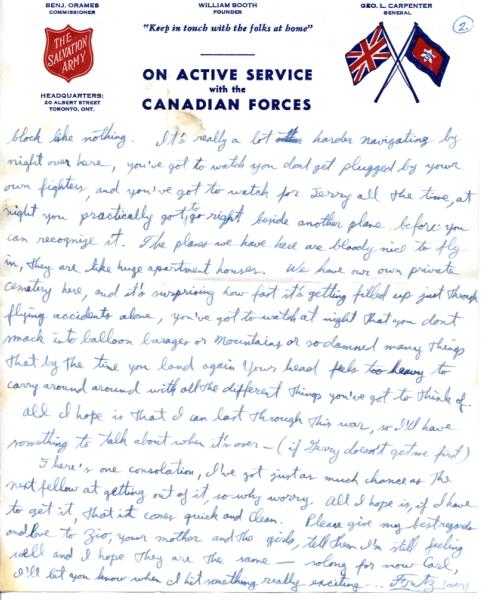 BENJ. ORAMES
COMMISSIONER
WILLIAM BOOTH
FOUNDER
GEO. L. CARPENTER
GENERAL
2.
"Keep in touch with the folks at home"
THE SALVATION ARMY
HEADQUARTERS:
20 ALBERT STREET
TORONTO, ONT.
ON ACTIVE SERVICE
with the
CANADIAN FORCES
block like nothing. It's really a lot harder navigating by
night over here, you've got to watch you dont get plugged by your
own fighters, and you've got to watch for Jerry all the time, at
night you practically got to go right beside another plane before you
can recognise it. The planes we have here are bloody nice to fly
in, they are like huge apartment houses. We have our own private
cemetary here, and it's surprising how fast it's getting filled up just through
flying accidents alone, you've got to watch at night that you don't
smack into balloon barages or mountains or so damned many things
that by the time you land again your head feels too heavy to
carry around around with all the different things you've got to think of.
all I hope is that I can last through this war, so I'll have
something to talk about when it's over — (if Gerry doesn't get me first)
There's one consolation, I've got just as much chance as the
next fellow at getting out of it, so why worry. All I hope is, if I have
to get it, that it comes quick and clean. Please give my best regards
and love to Zio, your mother and the girls, tell them I'm still feeling
well and I hope they are the same — solong for now Carl,
I'll let you know when I hit something really exciting... Frntz (over)